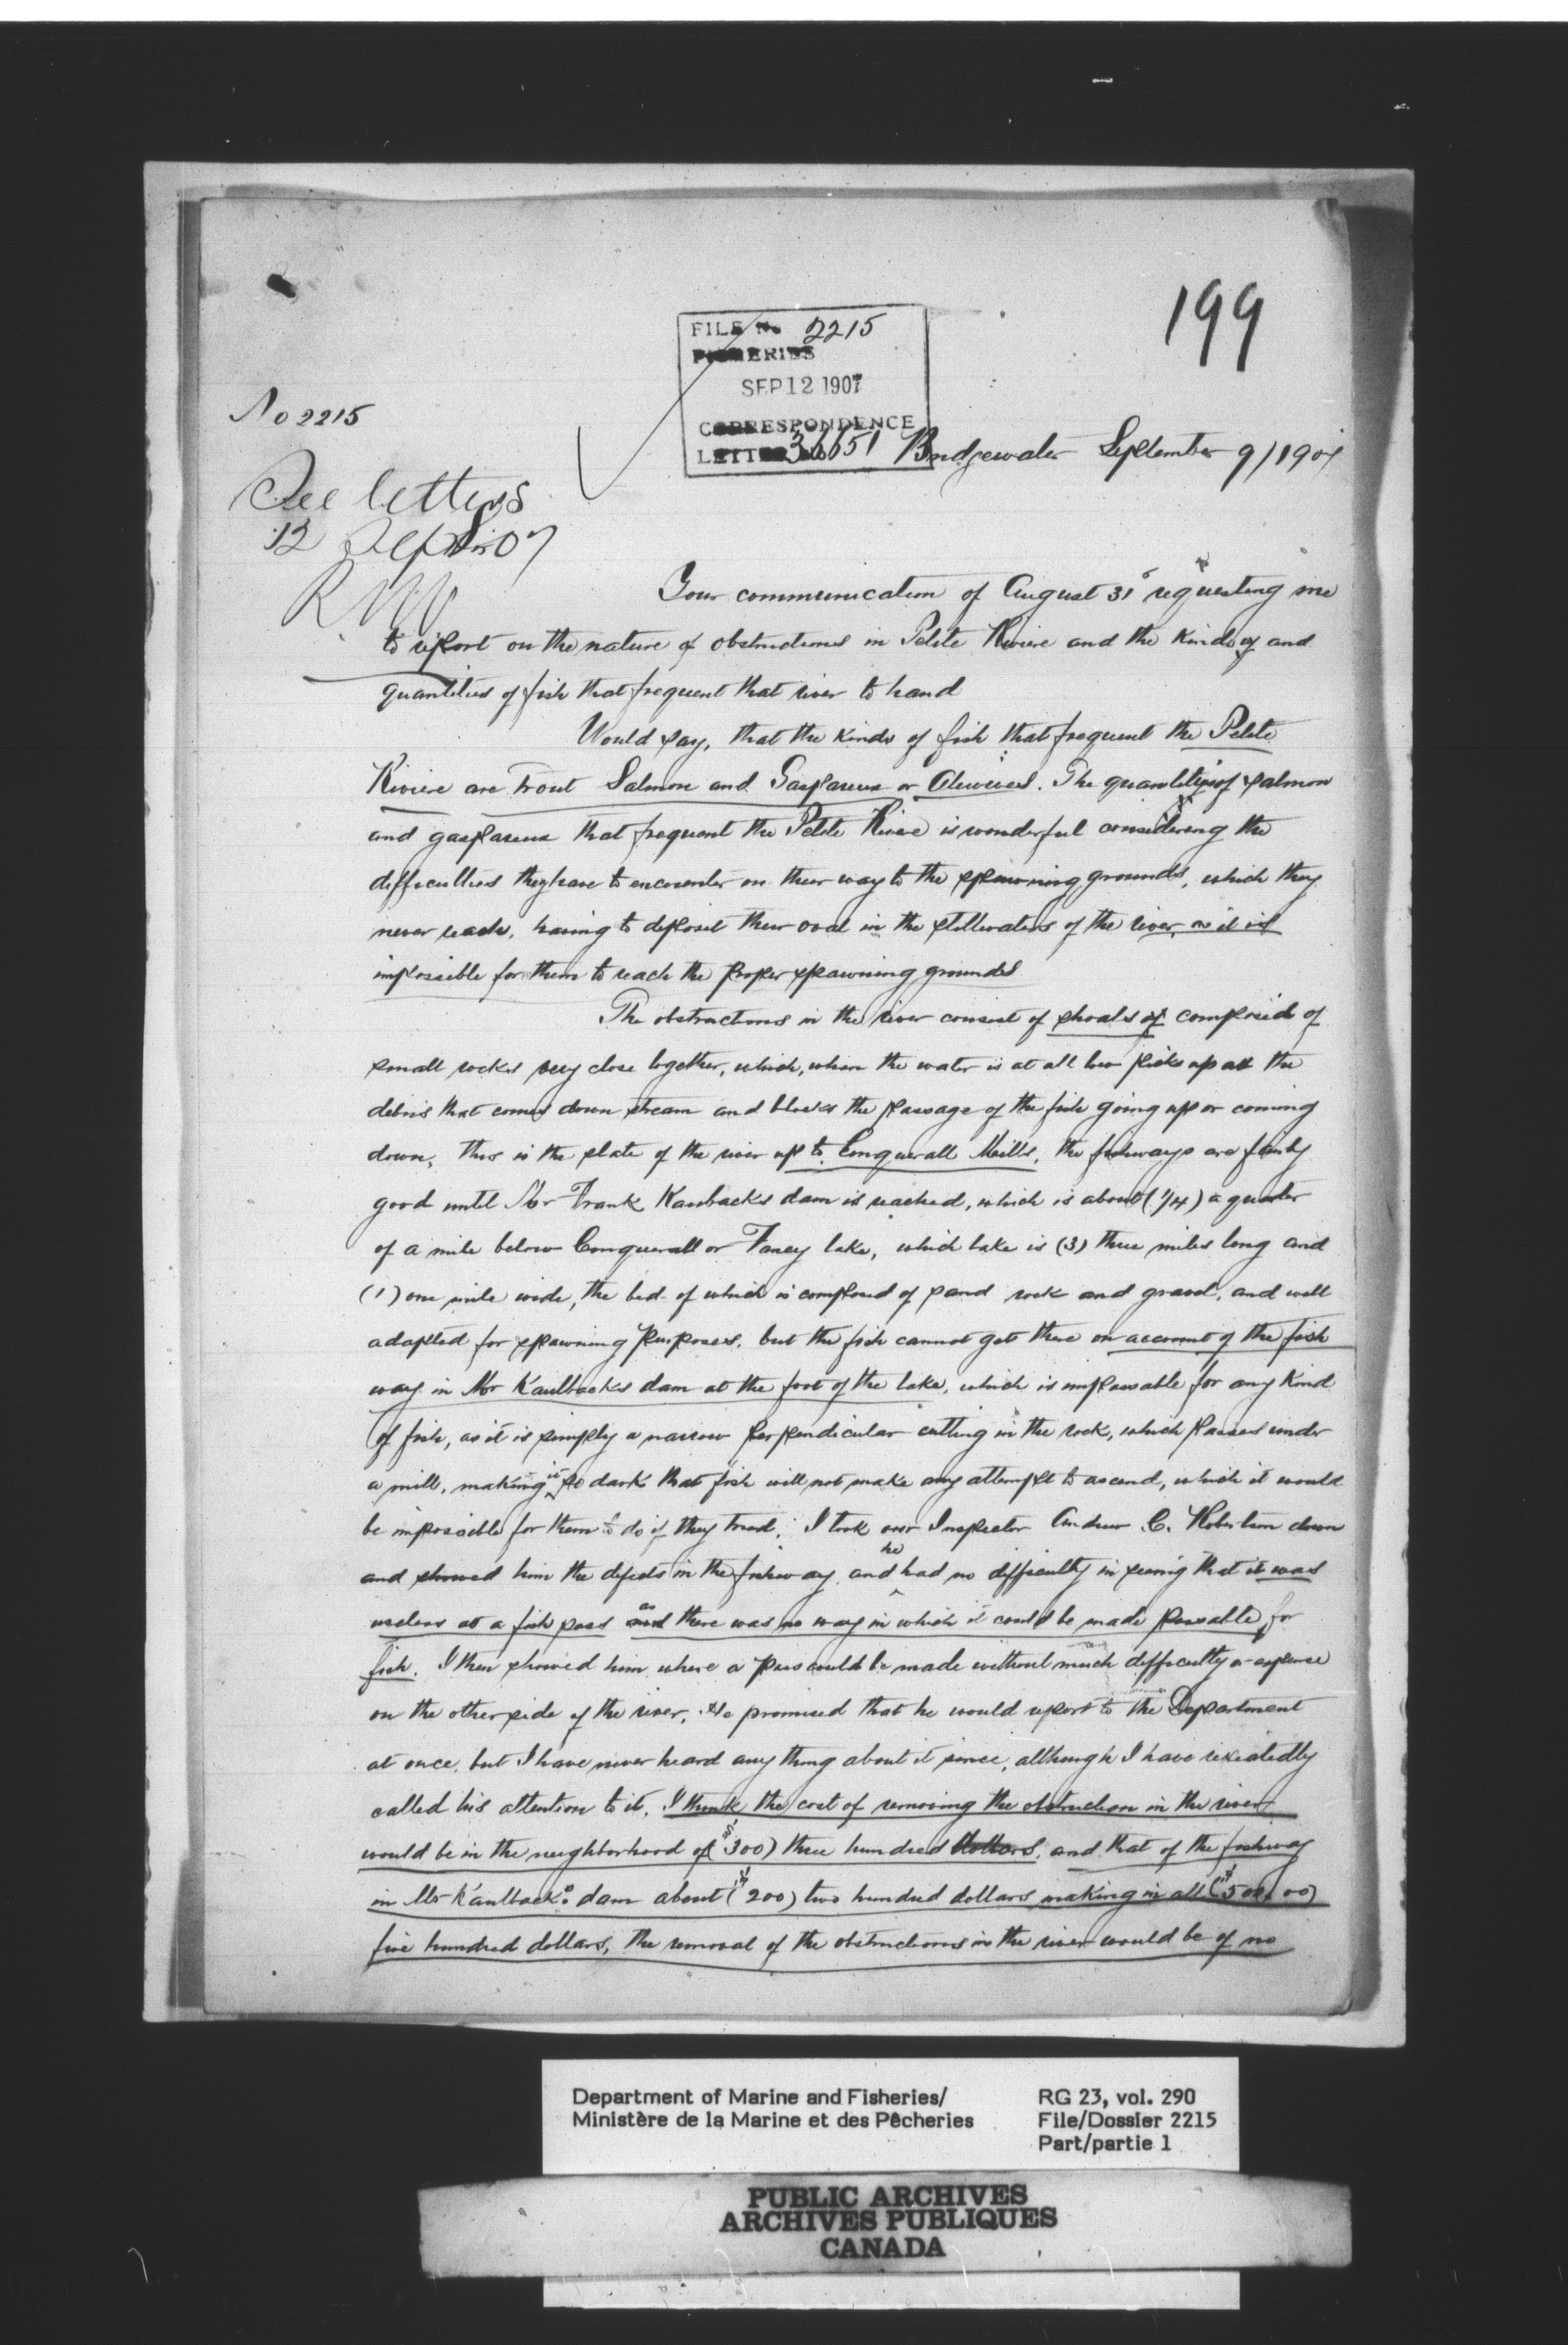 199
FILE No. 2215
FISHERIES
SEP 12 1907
CORRESPONDENCE
LETTER No 36651
No 2215
Bridgewater September 9/1907
See letters
12 Sept 07
Sir
Your communication of August 31st requesting me
to report on the nature of obstructions in Petite Riviere and the kinds of and
quantities of fish that frequent that river to hand
Would say, that the kinds of fish that frequent the Petite
Riviere are Trout Salmon and Gaspareux or Alewives. The quantities of salmon
and gaspareux that frequent the Petite Riviere is wonderful considering the
difficulties they have to encounter on their way to the spawning grounds, which they
never reach, having to deposit their ova in the stillwaters of the river, as it is
impossible for them to reach the proper spawning grounds
The obstructions in the river consist of shoals of composed of
small rocks very close together, which, when the water is at all low picks up all the
debris that comes down stream and blocks the passage of the fish going up or coming
down, this is the state of the river up to Conquerall Mills, the fishways are fairly
good until Mr Frank Kaulbacks dam is reached, which is about (1/4) a quarter
of a mile below Conquerall or Fancy lake, which lake is (3) three miles long and
(1) one mile wide, the bed of which is composed of sand rock and gravel, and well
adapted for spawning purposes, but the fish cannot get there on account of the fish
way in Mr Kaulbacks dam at the foot of the lake, which is impassable for any kind
of fish, as it is simply a narrow perpendicular cutting in the rock, which passes under
a mill, making it so dark that fish will not make any attempt to ascend, which it would
be impossible for them to do if they tried. I took our Inspector Andrew C. Robertson down
and showed him the defects in the fishway and he had no difficulty in seeing that it was
useless as a fish pass as there was no way in which it could be made passable for
fish. I then showed him where a pass could be made without much difficulty or expense
on the other side of the river. He promised that he would report to the Department
at once, but I have never heard any thing about it since, although I have repeatedly
called his attention to it. I think the cost of removing the obstruction in the river
would be in the neighborhood of ($300) three hundred dollars, and that of the fishway
in Mr Kaulback's dam about ($200) two hundred dollars, making in all ($500.00)
five hundred dollars, the removal of the obstructions in the river would be of no
Department of Marine and Fisheries/
Ministère de la Marine et des Pêcheries
RG 23, vol. 290
File/Dossier 2215
Part/partie 1
PUBLIC ARCHIVES
ARCHIVES PUBLIQUES
CANADA